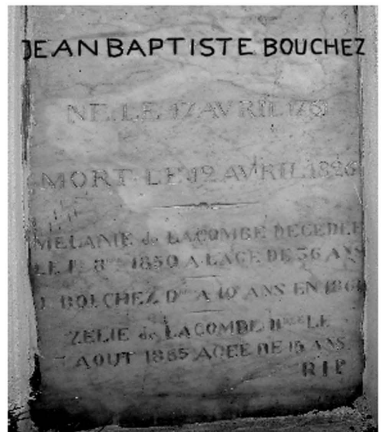 JEAN BAPTISTE BOUCHEZ
NE LE 17 AVRIL
MORT LE AVRIL 1826
MELANIE de LACOMBE DECEDEE
LE 1850 A L'AGE DE 36 ANS
J BOUCHEZ A ANS EN
ZELIE de LACOMBE LE
AOUT 1885 AGEE DE 15 ANS
RIP